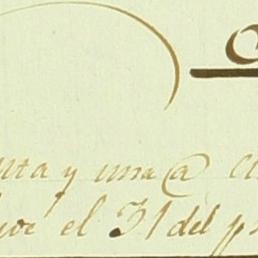 nta y una @
el 31 del p